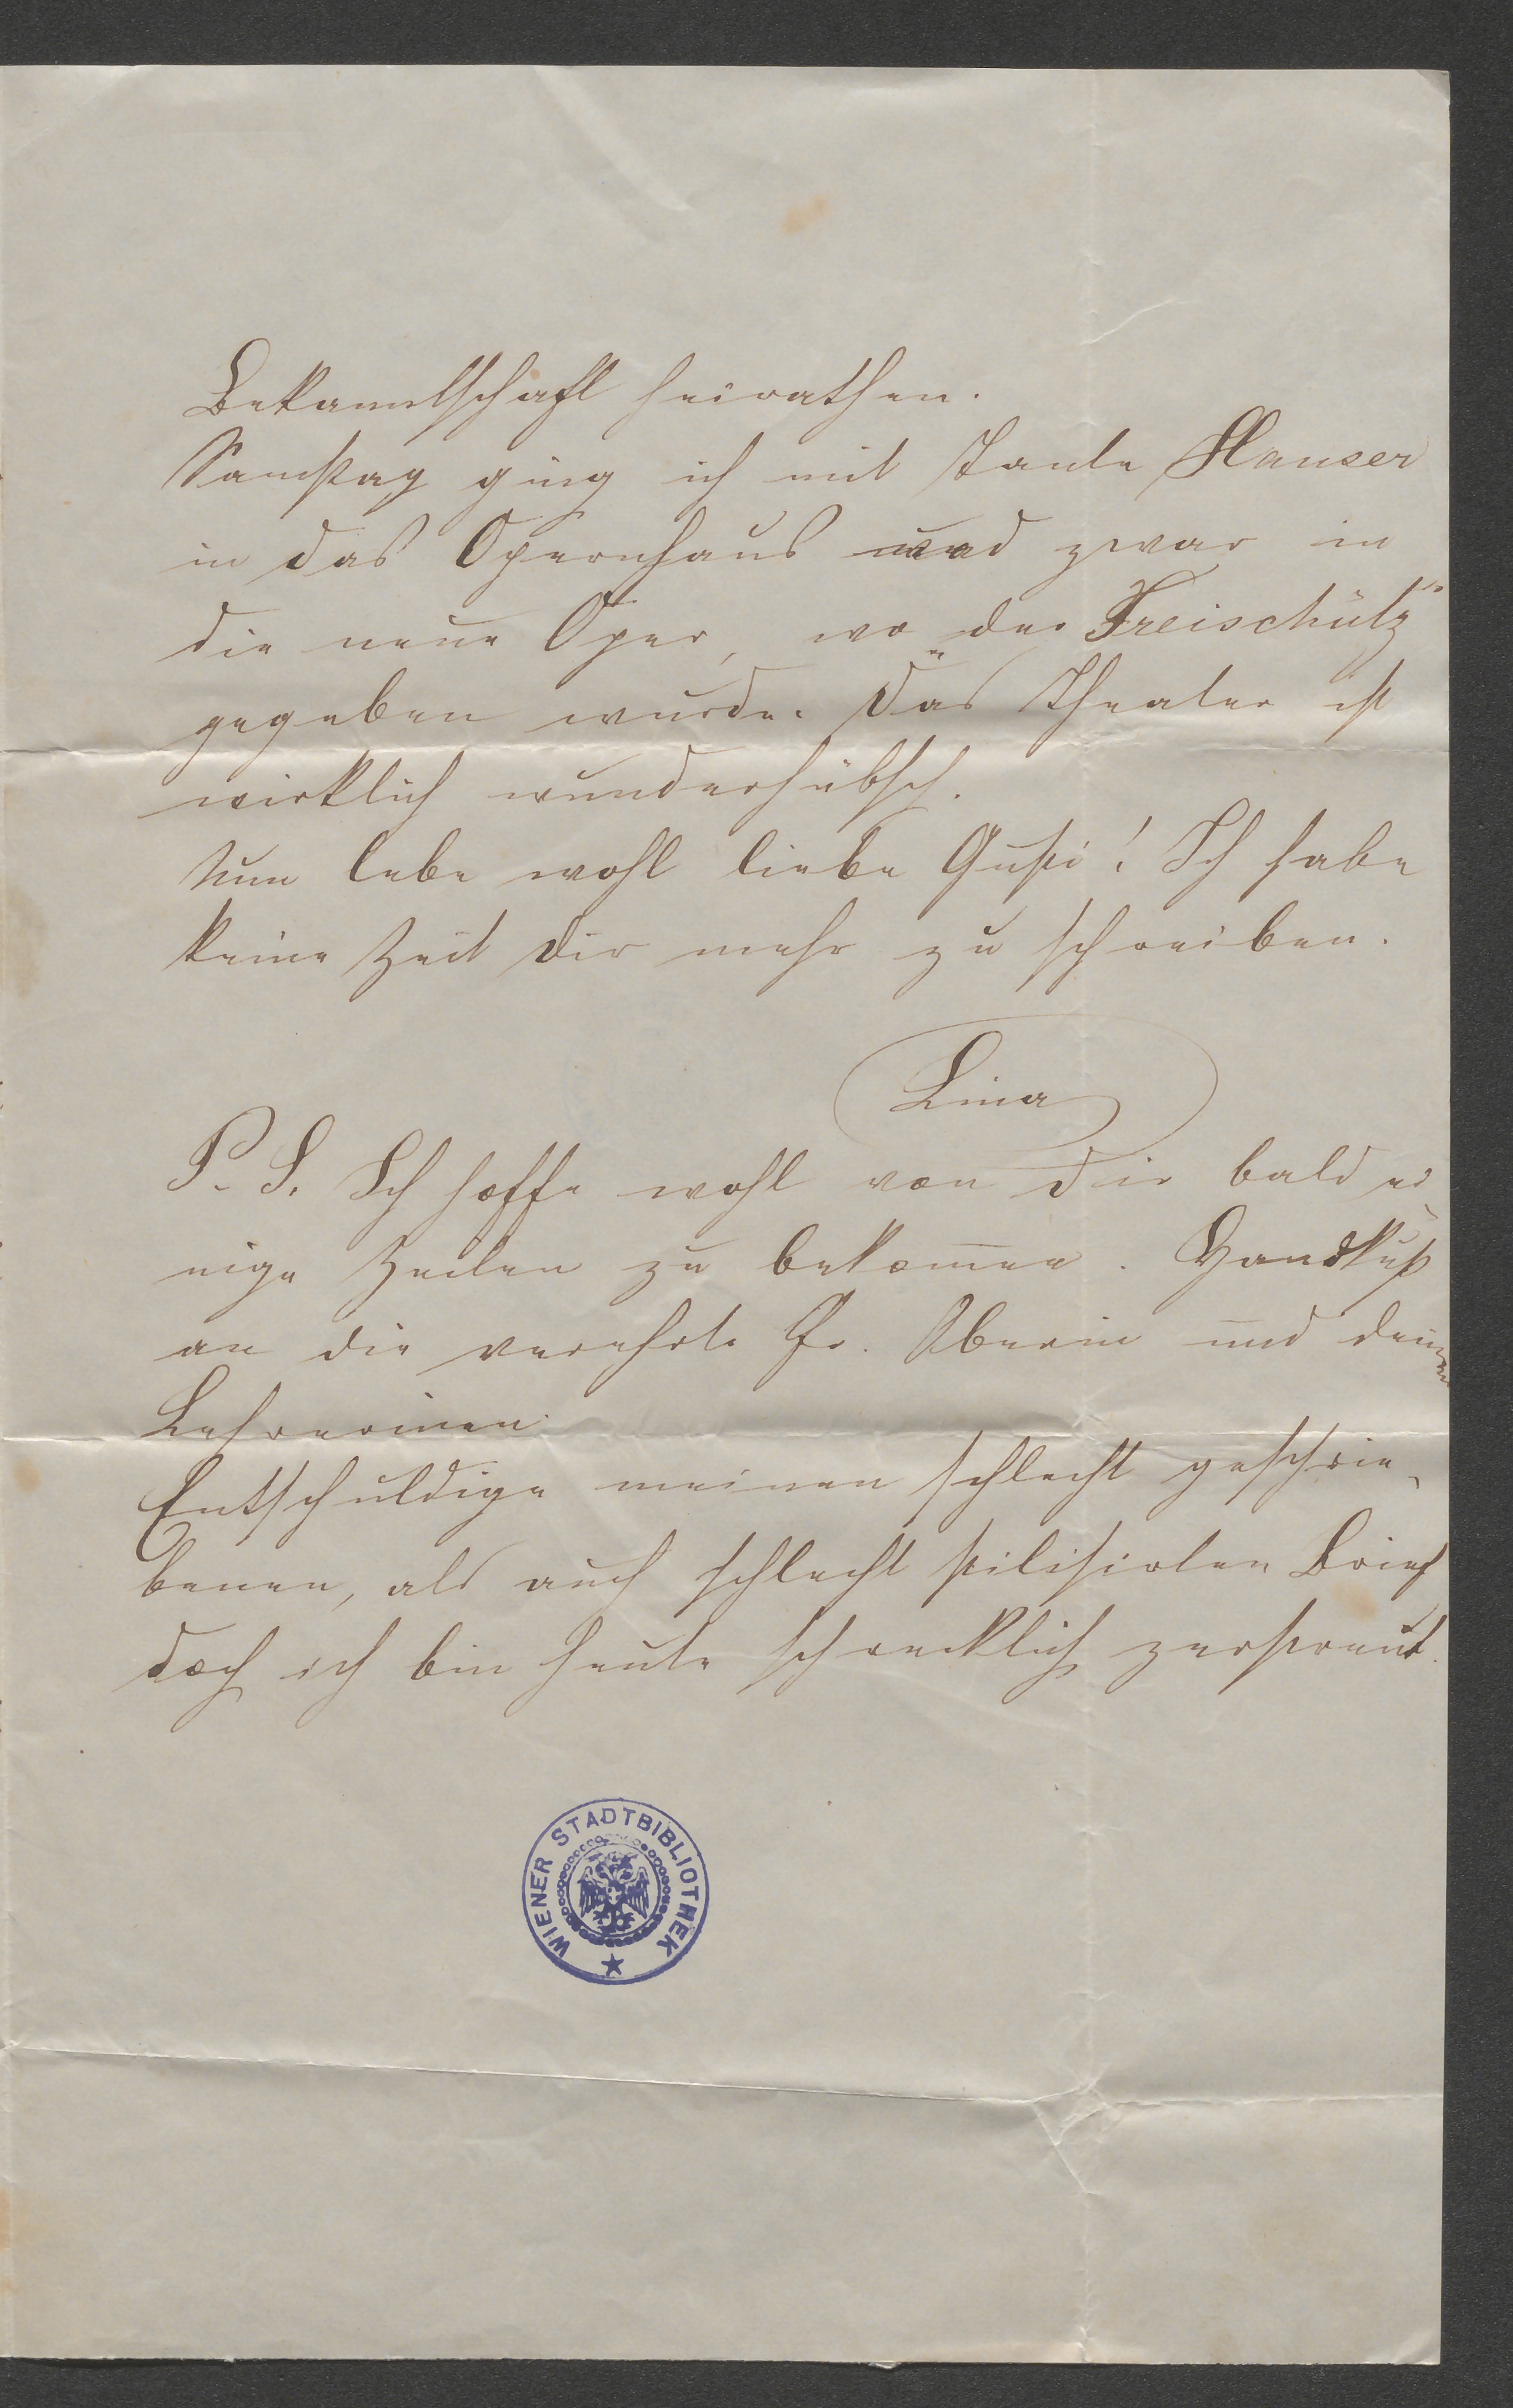 Bekanntschaft heirathen.
Samstag ging ich mit Tante Hauser
in das Opernhaus und zwar in
die neue Oper, wo „der Freischütz“
gegeben wurde. Das Theater ist
wirklich wunderhübsch.
Nun lebe wohl liebe Gusti! Ich habe
keine Zeit dir mehr zu schreiben.
Lina
P. S. Ich hoffe wohl von dir bald ei
nige Zeilen zu bekom̅en. Handkuß
an die verehrte Fr. Oberin und deinen
Lehrerinen.
Entschuldige meinen schlecht geschrie-
benen, als auch schlecht stilisirten Brief
doch ich bin heute schrecklich zerstreut.
WIENER STADTBIBLIOTHEK